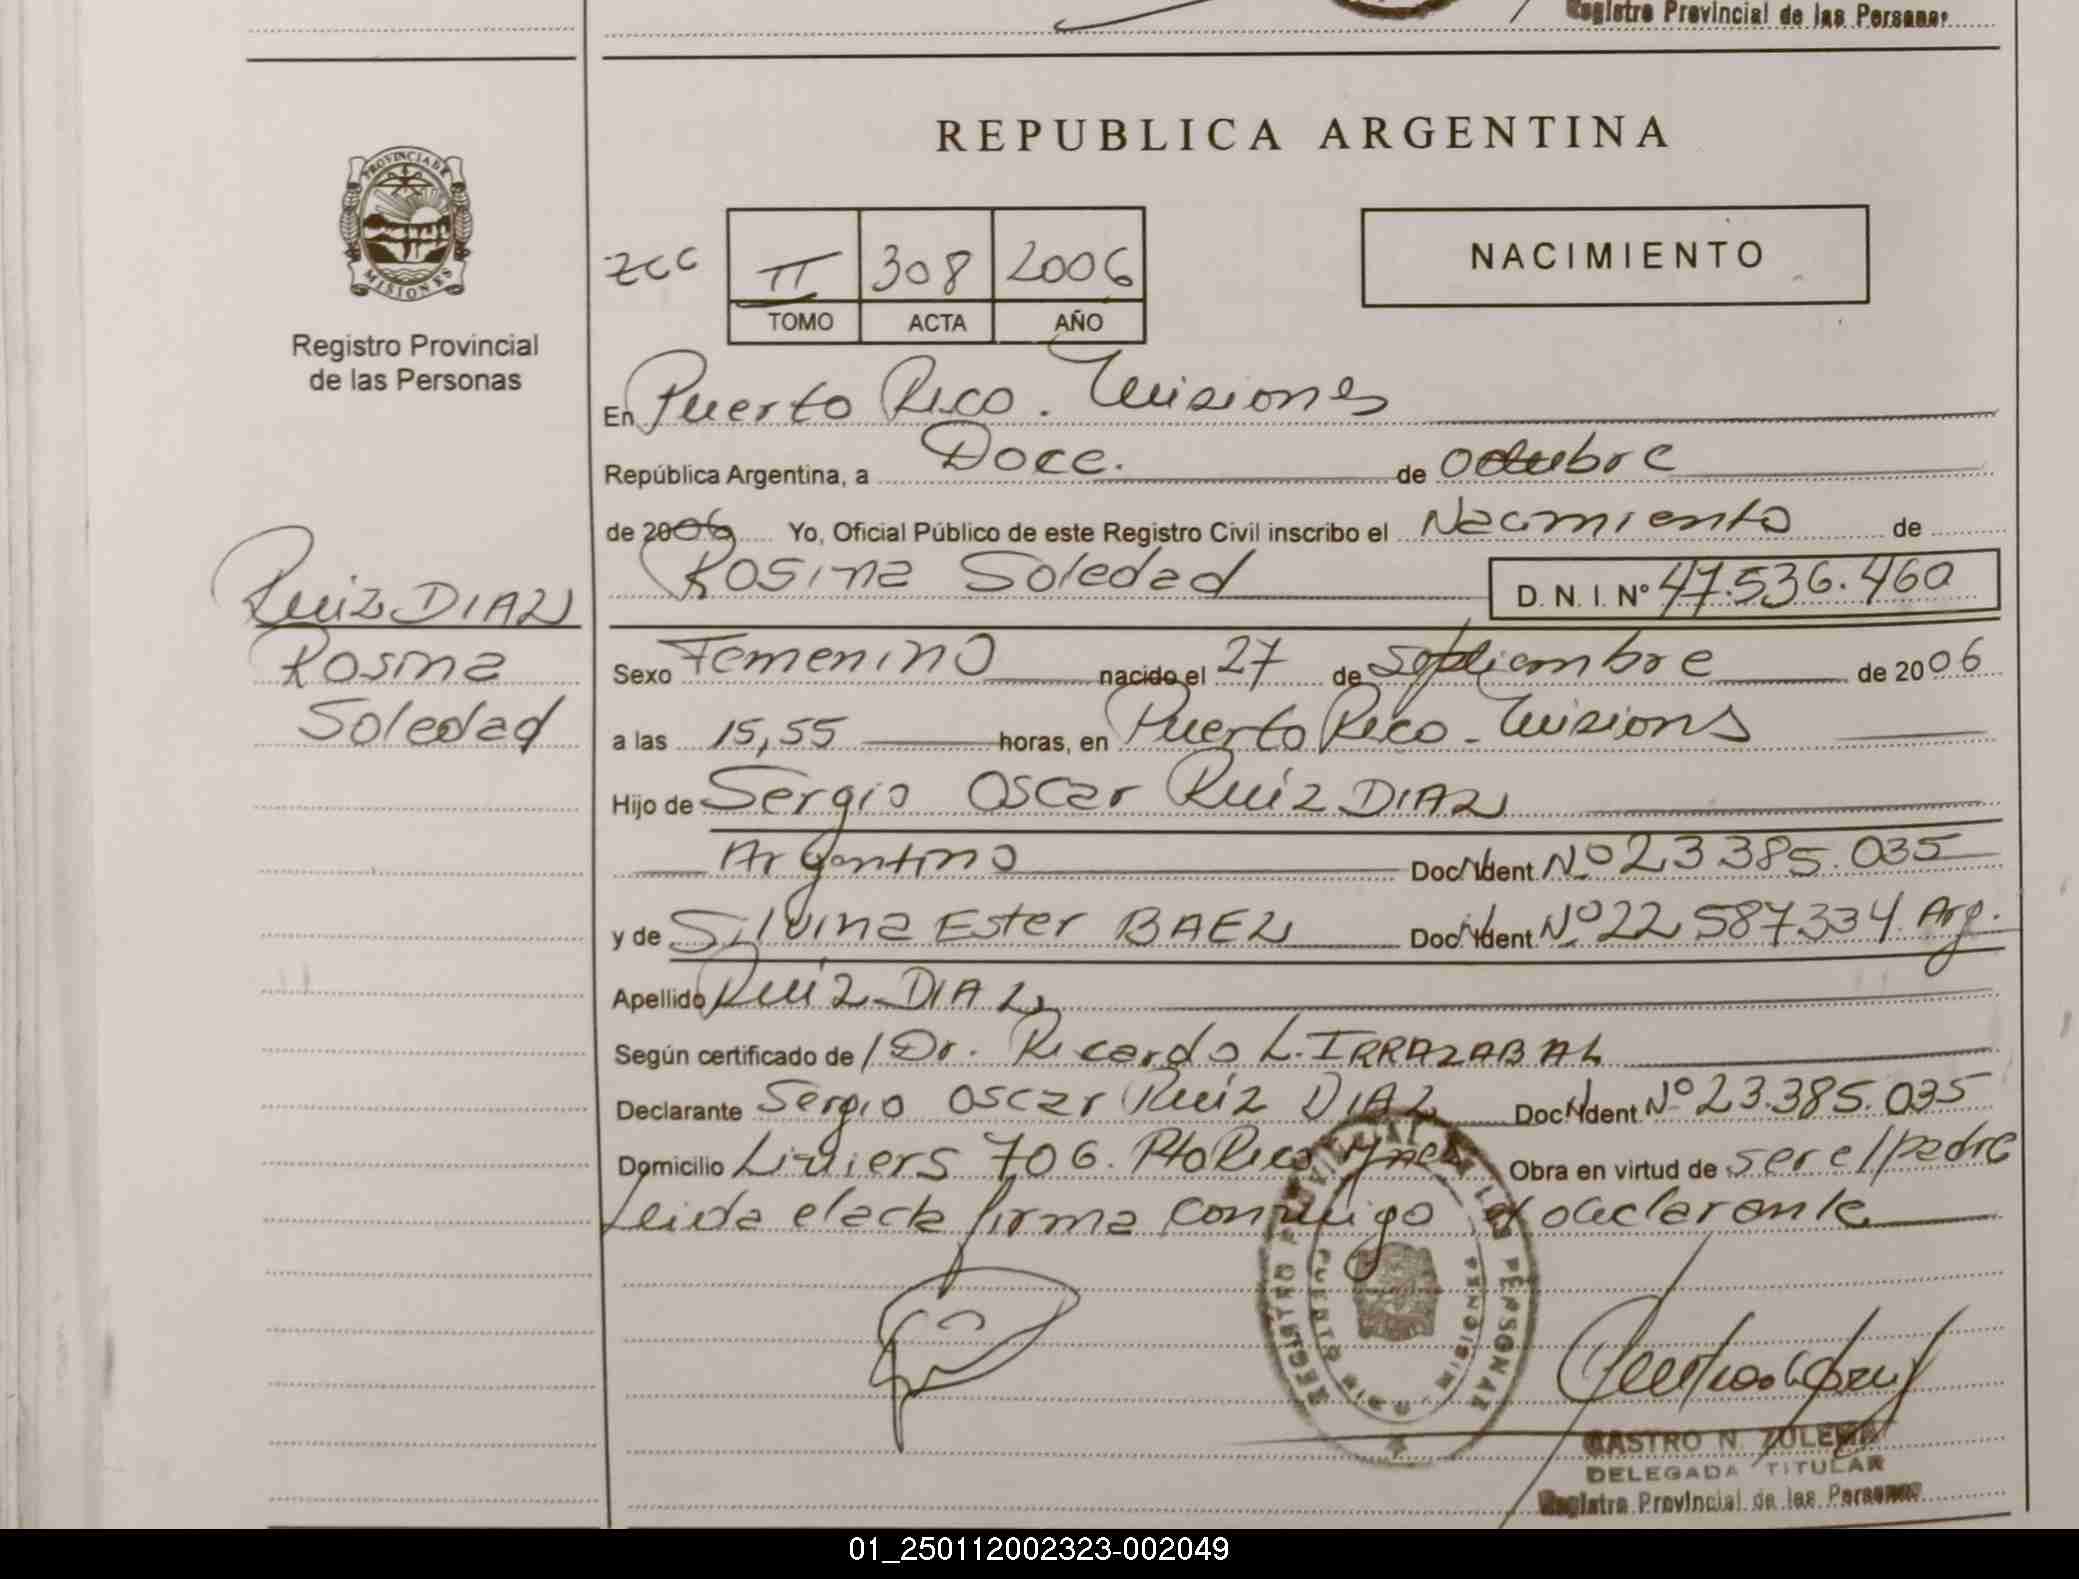 Registro Provincial de las Personas
REPUBLICA ARGENTINA
PROVINCIA DE
MISIONES
Registro Provincial
de las Personas
II 308 2006
TOMO ACTA AÑO
NACIMIENTO
En Puerto Rico. Misiones
República Argentina, a Doce. de octubre
de 2006 Yo, Oficial Público de este Registro Civil inscribo el Nacimiento de
Rosina Soledad D. N. I. Nº 47.536.460
Ruiz DIAZ
Rosina
Soledad
Sexo Femenino nacido el 27 de Septiembre de 2006
a las 15,55 horas, en Puerto Rico - Misions
Hijo de Sergio Oscar Ruiz DIAZ
Argentino Doc. Ident. Nº 23 385.035
y de Silvina Ester BAEZ Doc. Ident. Nº 22 587.334 Arg.
Apellido Ruiz DIAZ
Según certificado de / Dr. Ricardo L. IRRAZABAL
Declarante Sergio Oscar Ruiz DIAZ Doc. Ident. Nº 23.385.035
Domicilio Liniers 706. Pto Rico Mnes Obra en virtud de ser el padre
Leida el acta firma conmigo el declarante
REGISTRO PROVINCIAL DE LAS PERSONAS
PUERTO RICO
MISIONES
CASTRO N. ZULEMA
DELEGADA TITULAR
Registro Provincial de las Personas
01_250112002323-002049